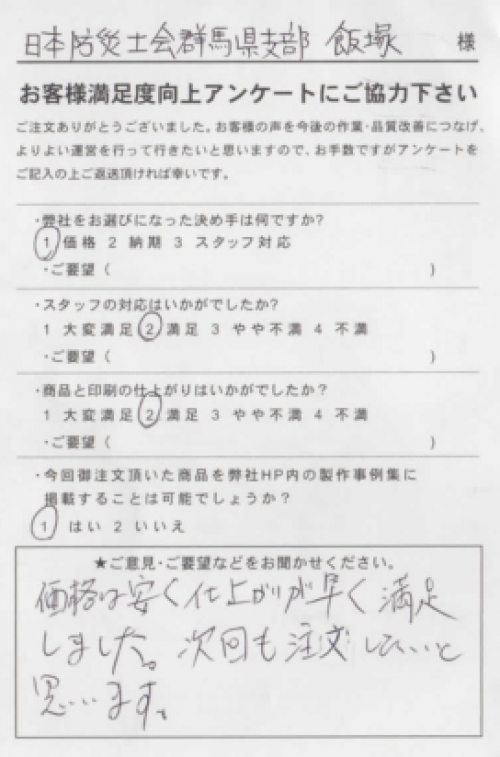 日本防災士会群馬県支部 飯塚 様
お客様満足度向上アンケートにご協力下さい
ご注文ありがとうございました。お客様の声を今後の作業・品質改善につなげ、
よりよい運営を行って行きたいと思いますので、お手数ですがアンケートを
ご記入の上ご返送頂ければ幸いです。
・弊社をお選びになった決め手は何ですか?
1 価格 2 納期 3 スタッフ対応
・ご要望( )
・スタッフの対応はいかがでしたか?
1 大変満足 2 満足 3 やや不満 4 不満
・ご要望( )
・商品と印刷の仕上がりはいかがでしたか?
1 大変満足 2 満足 3 やや不満 4 不満
・ご要望( )
・今回御注文頂いた商品を弊社HP内の製作事例集に
掲載することは可能でしょうか?
1 はい 2 いいえ
★ご意見・ご要望などをお聞かせください。
価格は安く仕上がりが早く満足
しました。次回も注文したいと
思います。